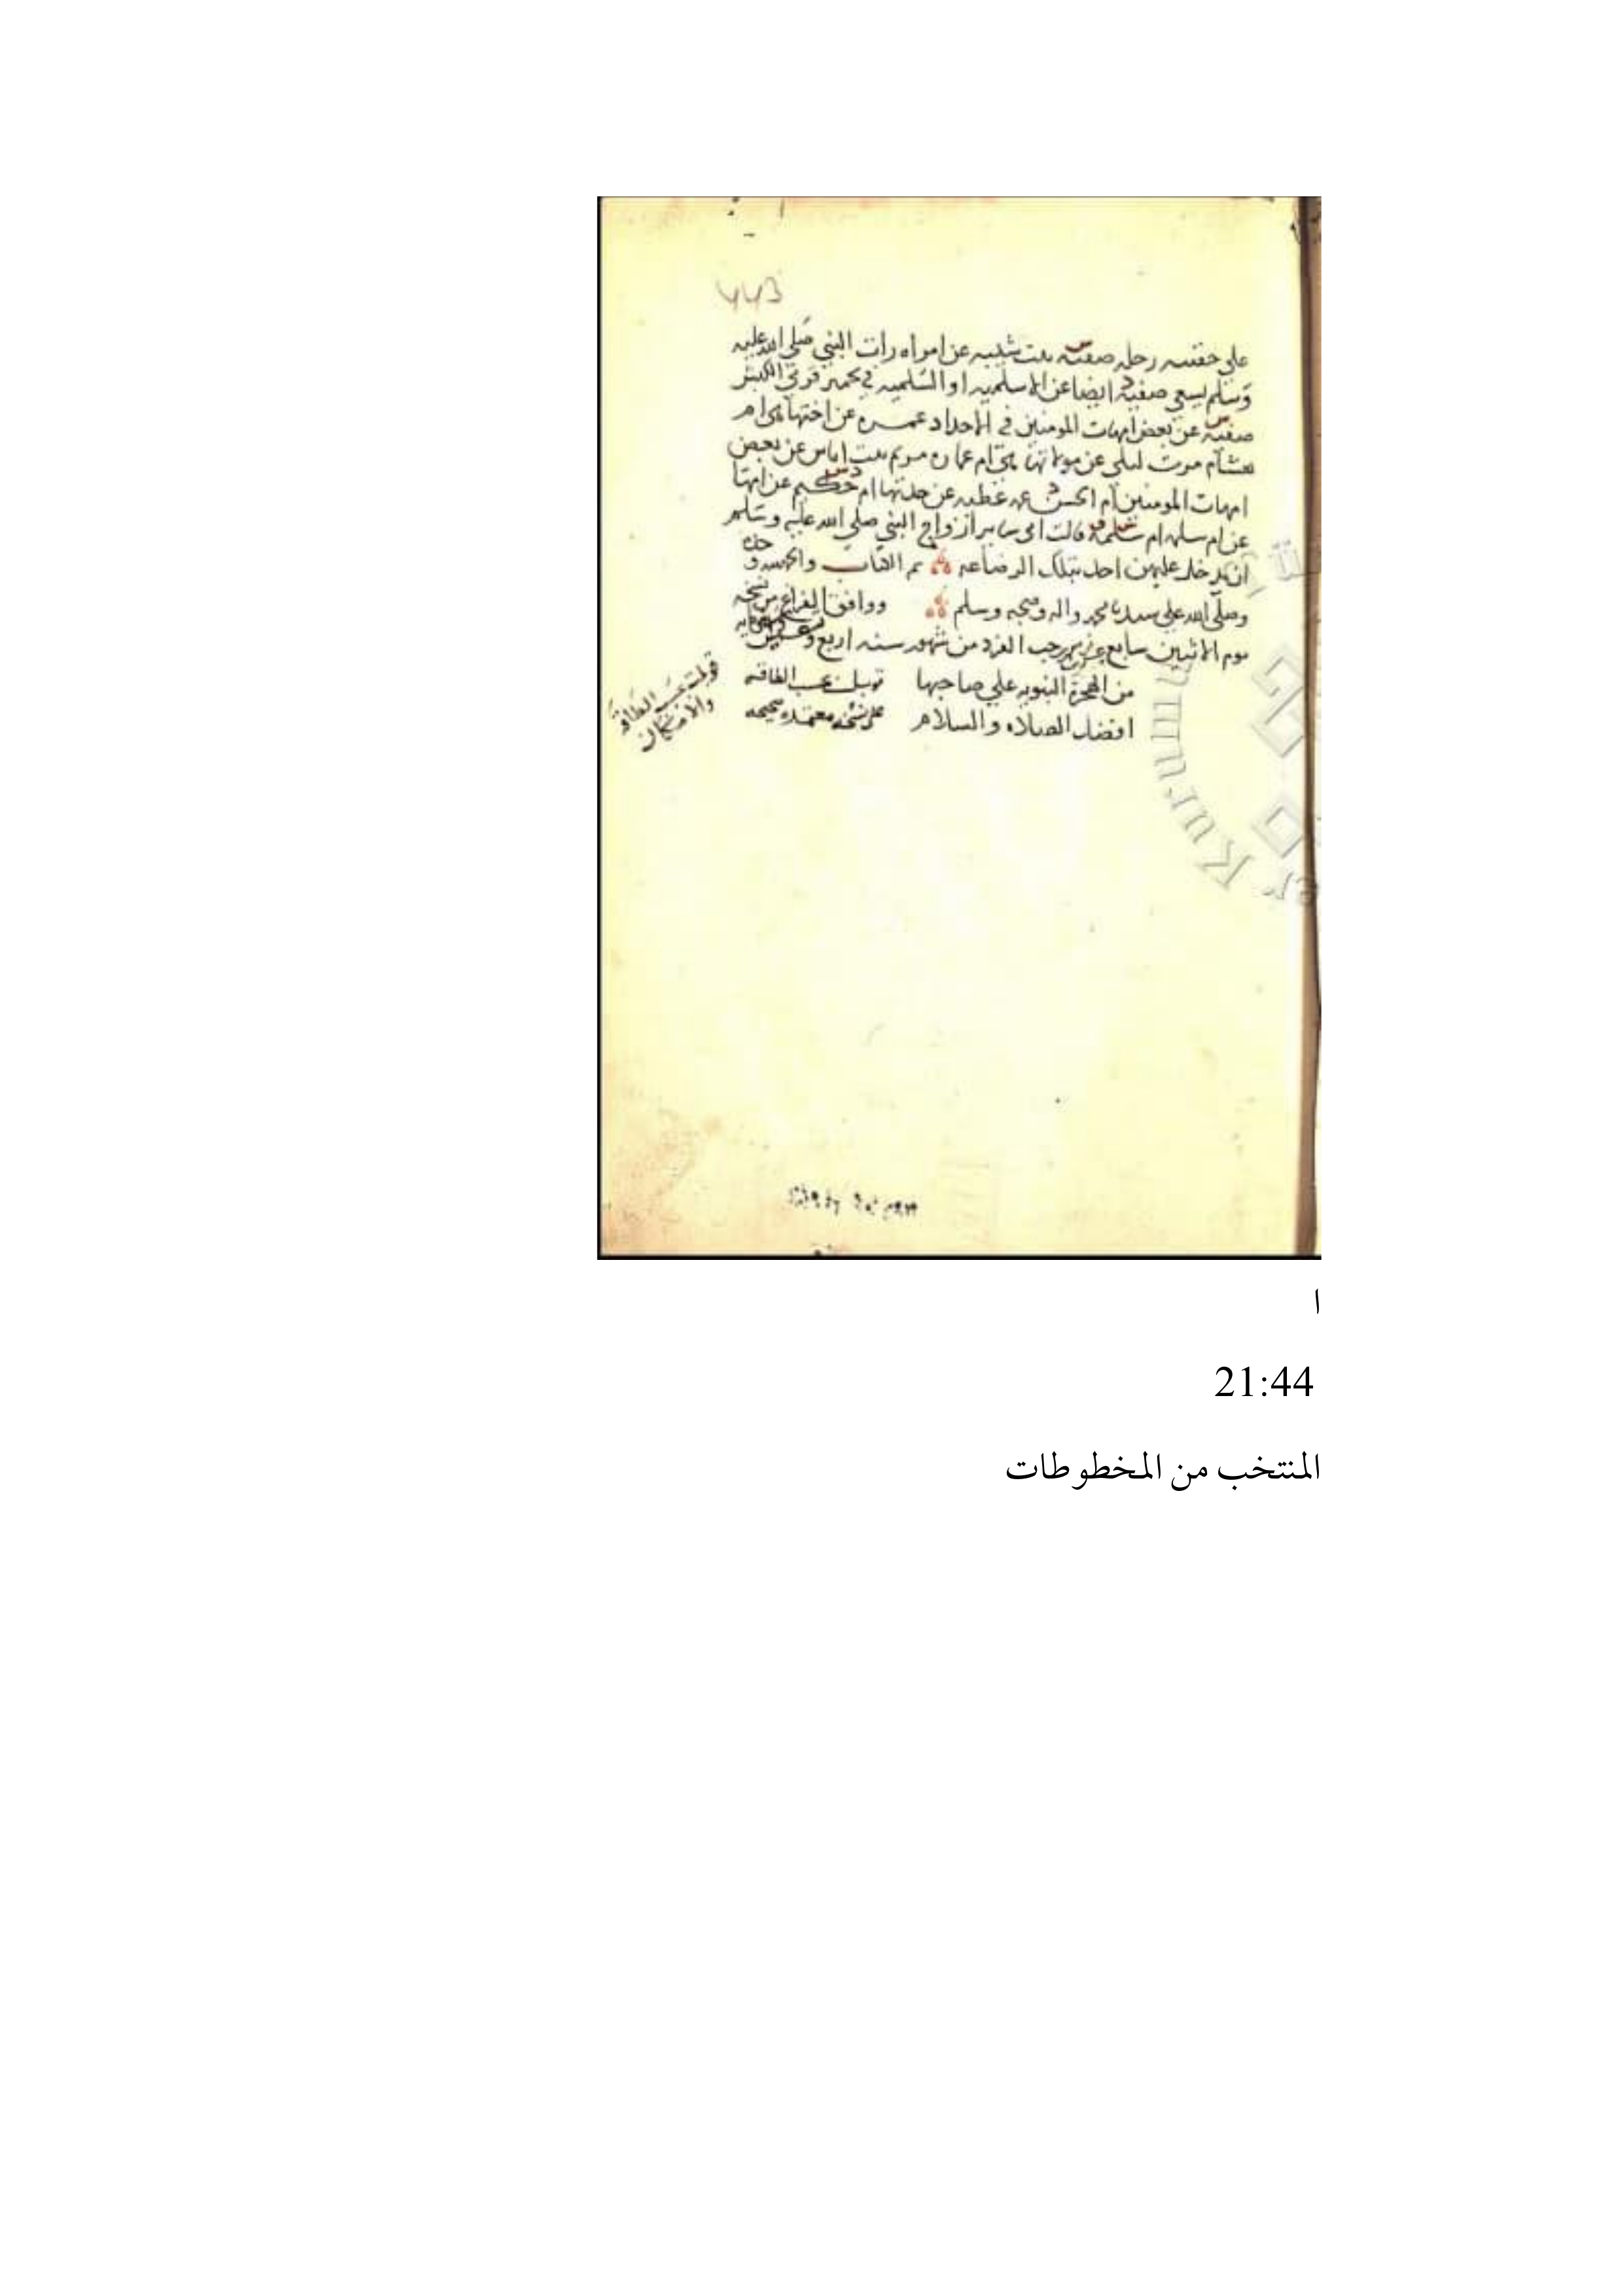 443
على حقيبه رحله صفيه بنت شيبه عن امراه رات النبي صلى الله عليه
وسلم يسعى صفيه ايضا عن الاسلميه او السلميه في تخمير قرني الكبش
صفيه عن بعض امهات المومنين في الاحداد عمره عن اختها هي ام
هشام مرت ليلى عن مولاتها هي ام عماره مريم بنت اياس عن بعض
امهات المومنين ام الحسن عمه غبطه عن جدتها ام حكيم عن امها
عن ام سلمه ام سلمه قالت ابى ساير ازواج النبي صلى الله عليه وسلم
ان يدخل عليهن احد بتلك الرضاعه تم الكتاب والحمد لله وحده
وصلى الله على سيدنا محمد واله وصحبه وسلم ووافق الفراغ من نسخه
يوم الاثنين سابع رجب الفرد من شهور سنه اربع وعشرين
من الهجرة النبويه على صاحبها
افضل الصلاه والسلام
قوبل بحسب الطاقه
على نسخه معتمده صحيحه
قوبلت بحسب الطاقة
والامكان
Kurumu
ا
21:44
المنتخب من المخطوطات